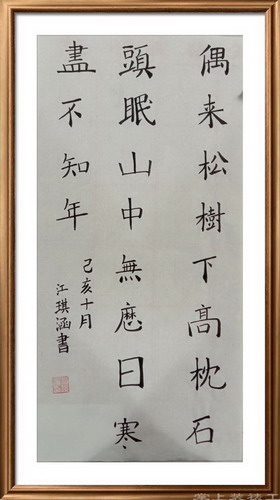 偶来松樹下高枕石
頭眠山中無厯日寒
盡不知年
己亥十月
江琪涵書